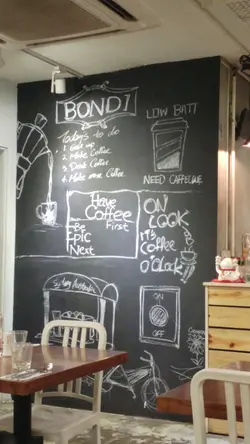 BONDI
Today's to do
1. Get up
2. Make Coffee
3. Drink Coffee
4. Make more Coffee
LOW BATT
NEED CAFFEINE
Have
Coffee
First
Be
Epic
Next
ON
LOOK
IT'S
Coffee
O'Clock
Sydney Australia
ON
OFF